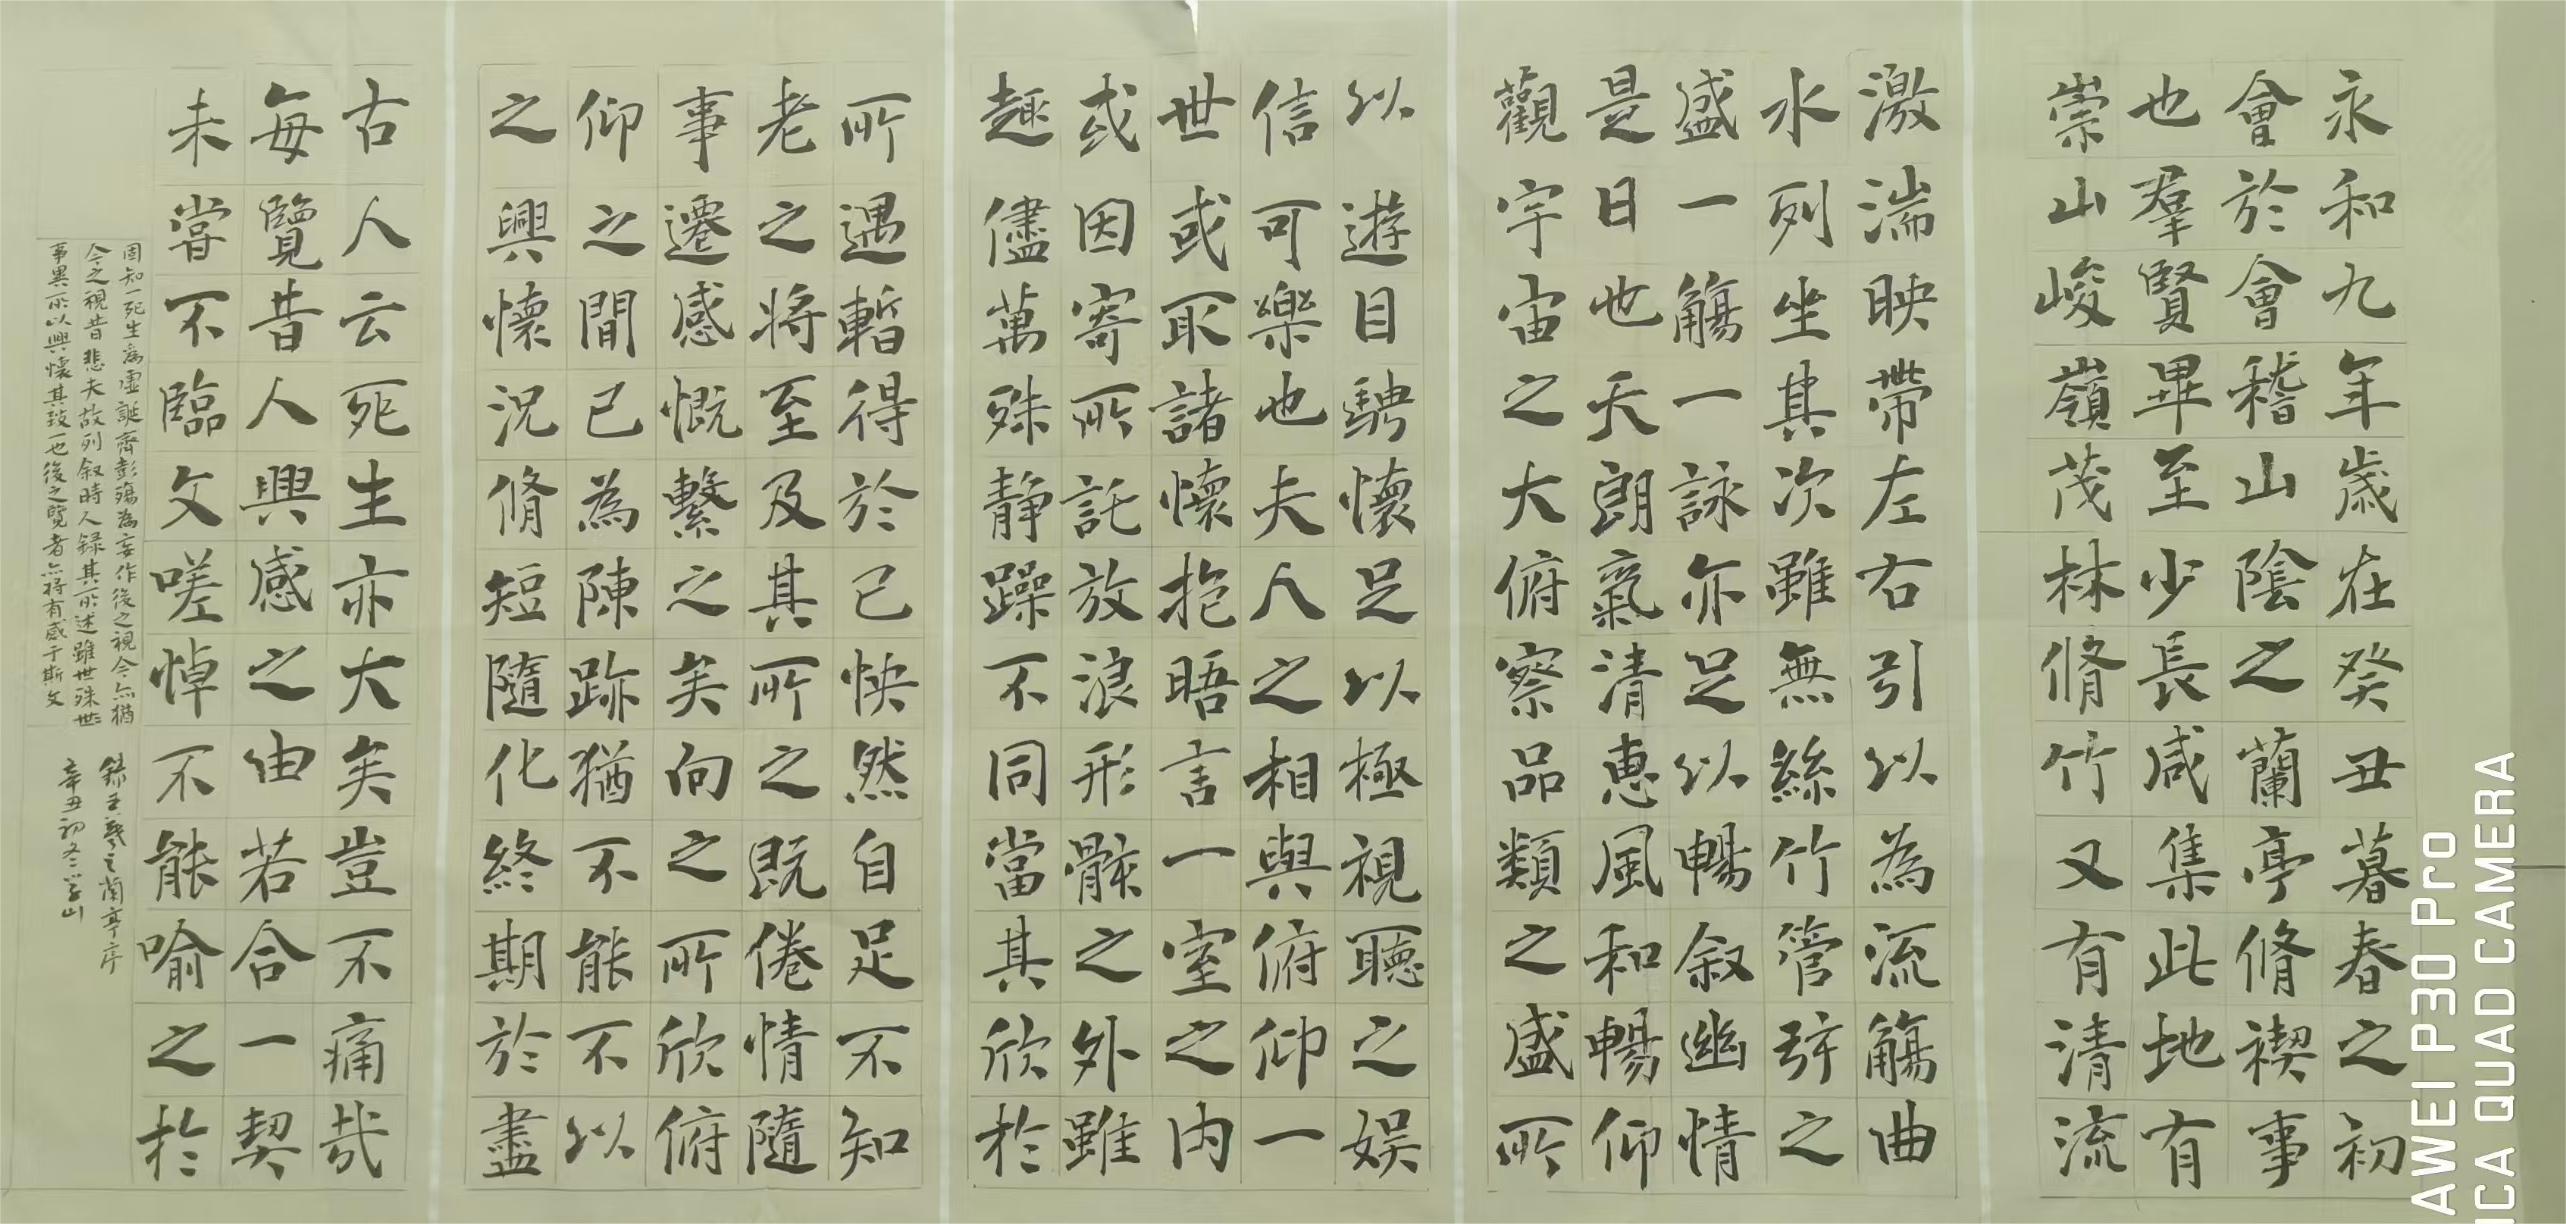 永和九年歲在癸丑暮春之初
會於會稽山陰之蘭亭脩禊事
也羣賢畢至少長咸集此地有
崇山峻嶺茂林脩竹又有清流
激湍映帶左右引以為流觴曲
水列坐其次雖無絲竹管弦之
盛一觴一詠亦足以暢叙幽情
是日也天朗氣清惠風和暢仰
觀宇宙之大俯察品類之盛所
以遊目騁懷足以極視聽之娛
信可樂也夫人之相與俯仰一
世或取諸懷抱晤言一室之内
或因寄所託放浪形骸之外雖
趣儘萬殊静躁不同當其欣於
所遇暫得於己怏然自足不知
老之將至及其所之既倦情隨
事遷感慨繫之矣向之所欣俯
仰之間已為陳跡猶不能不以
之興懷況脩短隨化終期於盡
古人云死生亦大矣豈不痛哉
每覽昔人興感之由若合一契
未嘗不臨文嗟悼不能喻之於
固知一死生為虛誕齊彭殤為妄作後之視今亦猶
今之視昔悲夫故列叙時人録其所述雖世殊世
事異所以興懷其致一也後之覽者亦將有感于斯文
録王羲之蘭亭序
辛丑初冬學山
AWEI P30 Pro
ICA QUAD CAMERA